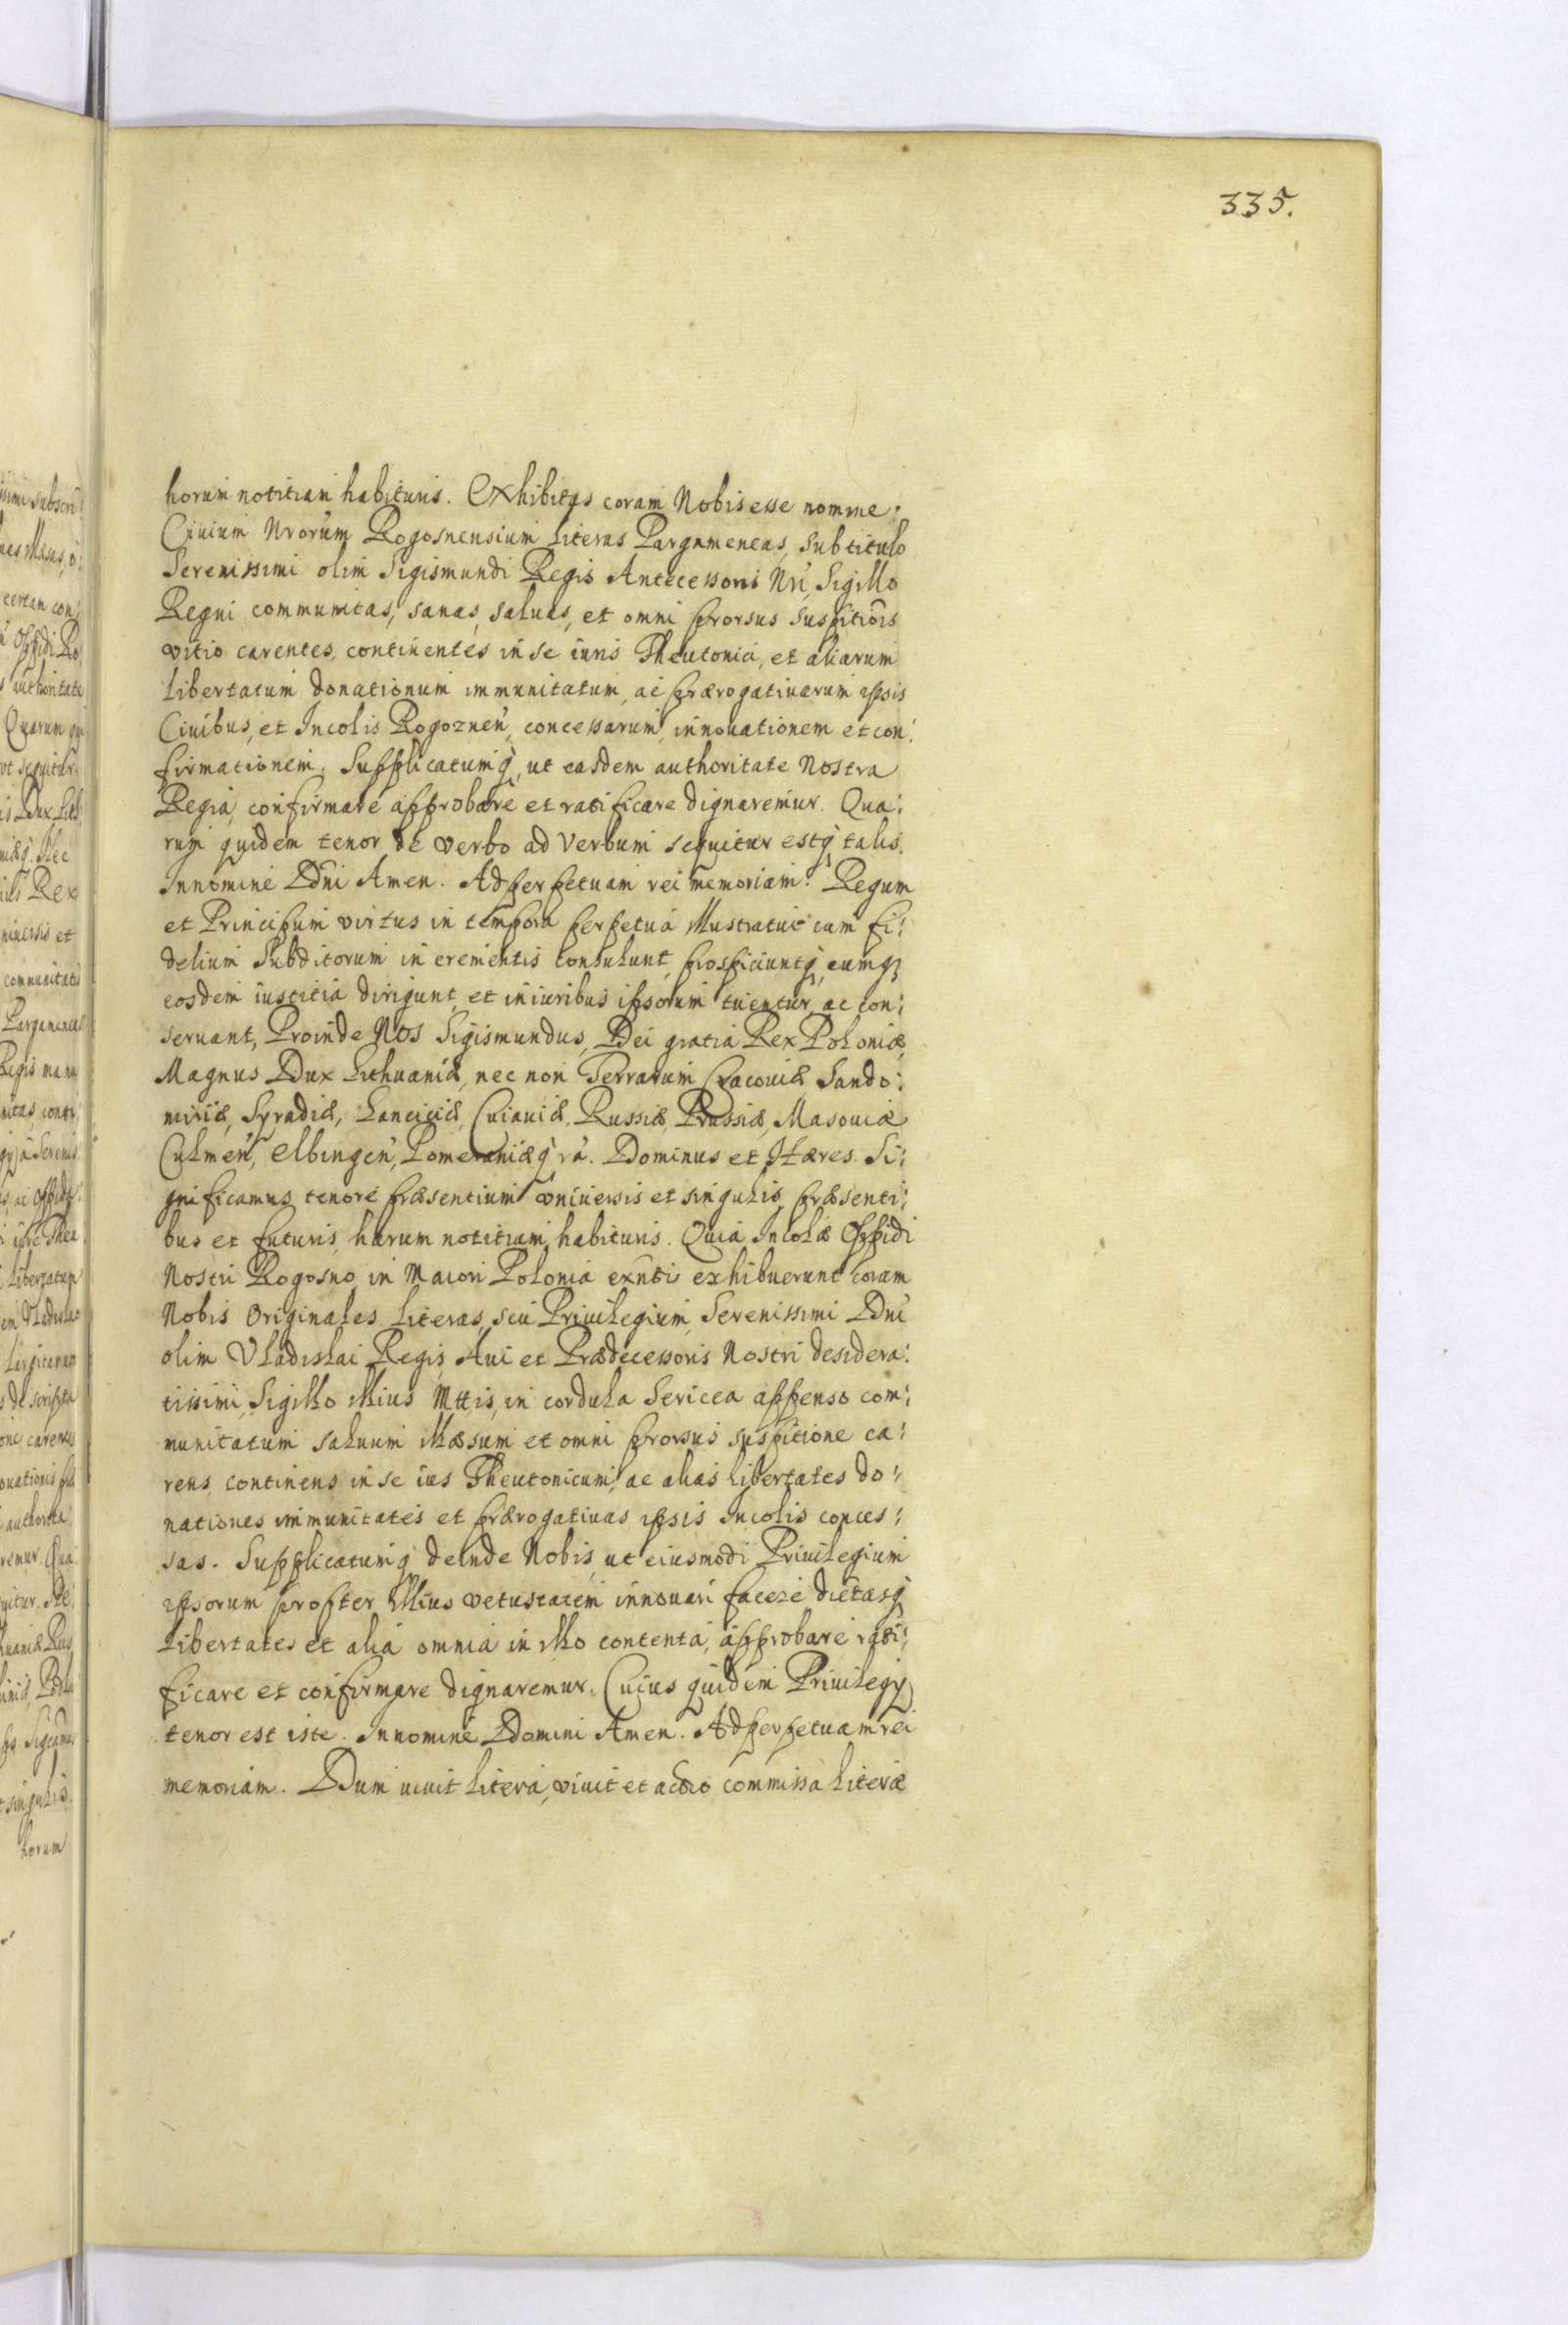 335.
horum notitiam habituris. Exhibitas coram Nobis esse nomine
Ciuium Nrorum Rogosnensium Literas Pargameneas, sub titulo
Serenissimi olim Sigismundi Regis Antecessoris Nri, Sigillo
Regni communitas, sanas, saluas, et omni prorsus suspitiois
vitio carentes, continentes in se iuris Theutonici, et aliarum
Libertatum donationum immunitatum, ac prærogatiuarum ipsis
Ciuibus, et Incolis Rogoznen, concessarum, innouationem et con:
firmationem, Supplicatumq, ut easdem authoritate Nostra
Regia, confirmare approbare et ratificare dignaremur. Qua:
rum quidem tenor de verbo ad verbum sequitur estq talis.
In nomine Dni Amen. Ad perpetuam rei memoriam. Regum
et Principum virtus in tempora perpetua illustratur cum fi:
delium Subditorum in crementis consulunt, prospiciuntq, cumq
eosdem iustitia dirigunt, et in iuribus ipsorum tuentur, ac con:
seruant, Proinde Nos Sigismundus, Dei gratia Rex Poloniæ,
Magnus Dux Lithuaniæ, nec non Terrarum Cracouiæ Sando:
miriæ, Syradiæ, Lanciciæ, Cuiauiæ, Russiæ, Prussiæ, Masouiæ
Culmen, Elbingen, Pomeraniæq ra. Dominus et Hæres. Si:
gnificamus tenore præsentium vniuersis et singulis, præsenti:
bus et futuris, harum notitiam habituris. Quia Incolæ Oppidi
Nostri Rogosno, in Maiori Polonia exnti exhibuerunt coram
Nobis Originales Literas, seu Priuilegium, Serenissimi Dni
olim Vladislai Regis, Aui et Prædecessoris Nostri desidera:
tissimi, Sigillo illius Mttis, in cordula Sericea appenso com:
munitatum saluum illæsum et omni prorsus suspitione ca:
rens, continens in se ius Theutonicum, ac alias Libertates do:
nationes immunitates et prærogatiuas ipsis Incolis conces:
sas. Supplicatumq deinde Nobis, ut eiusmodi Priuilegium
ipsorum propter illius vetustatem innouari facere dictasq
Libertates et alia omnia in illo contenta, approbare rati:
ficare et confirmare dignaremur. Cuius quidem Priuilegij
tenor est iste. In nomine Domini Amen. Ad perpetuam rei
memoriam. Dum viuit Litera, viuit et actio commissa Literæ